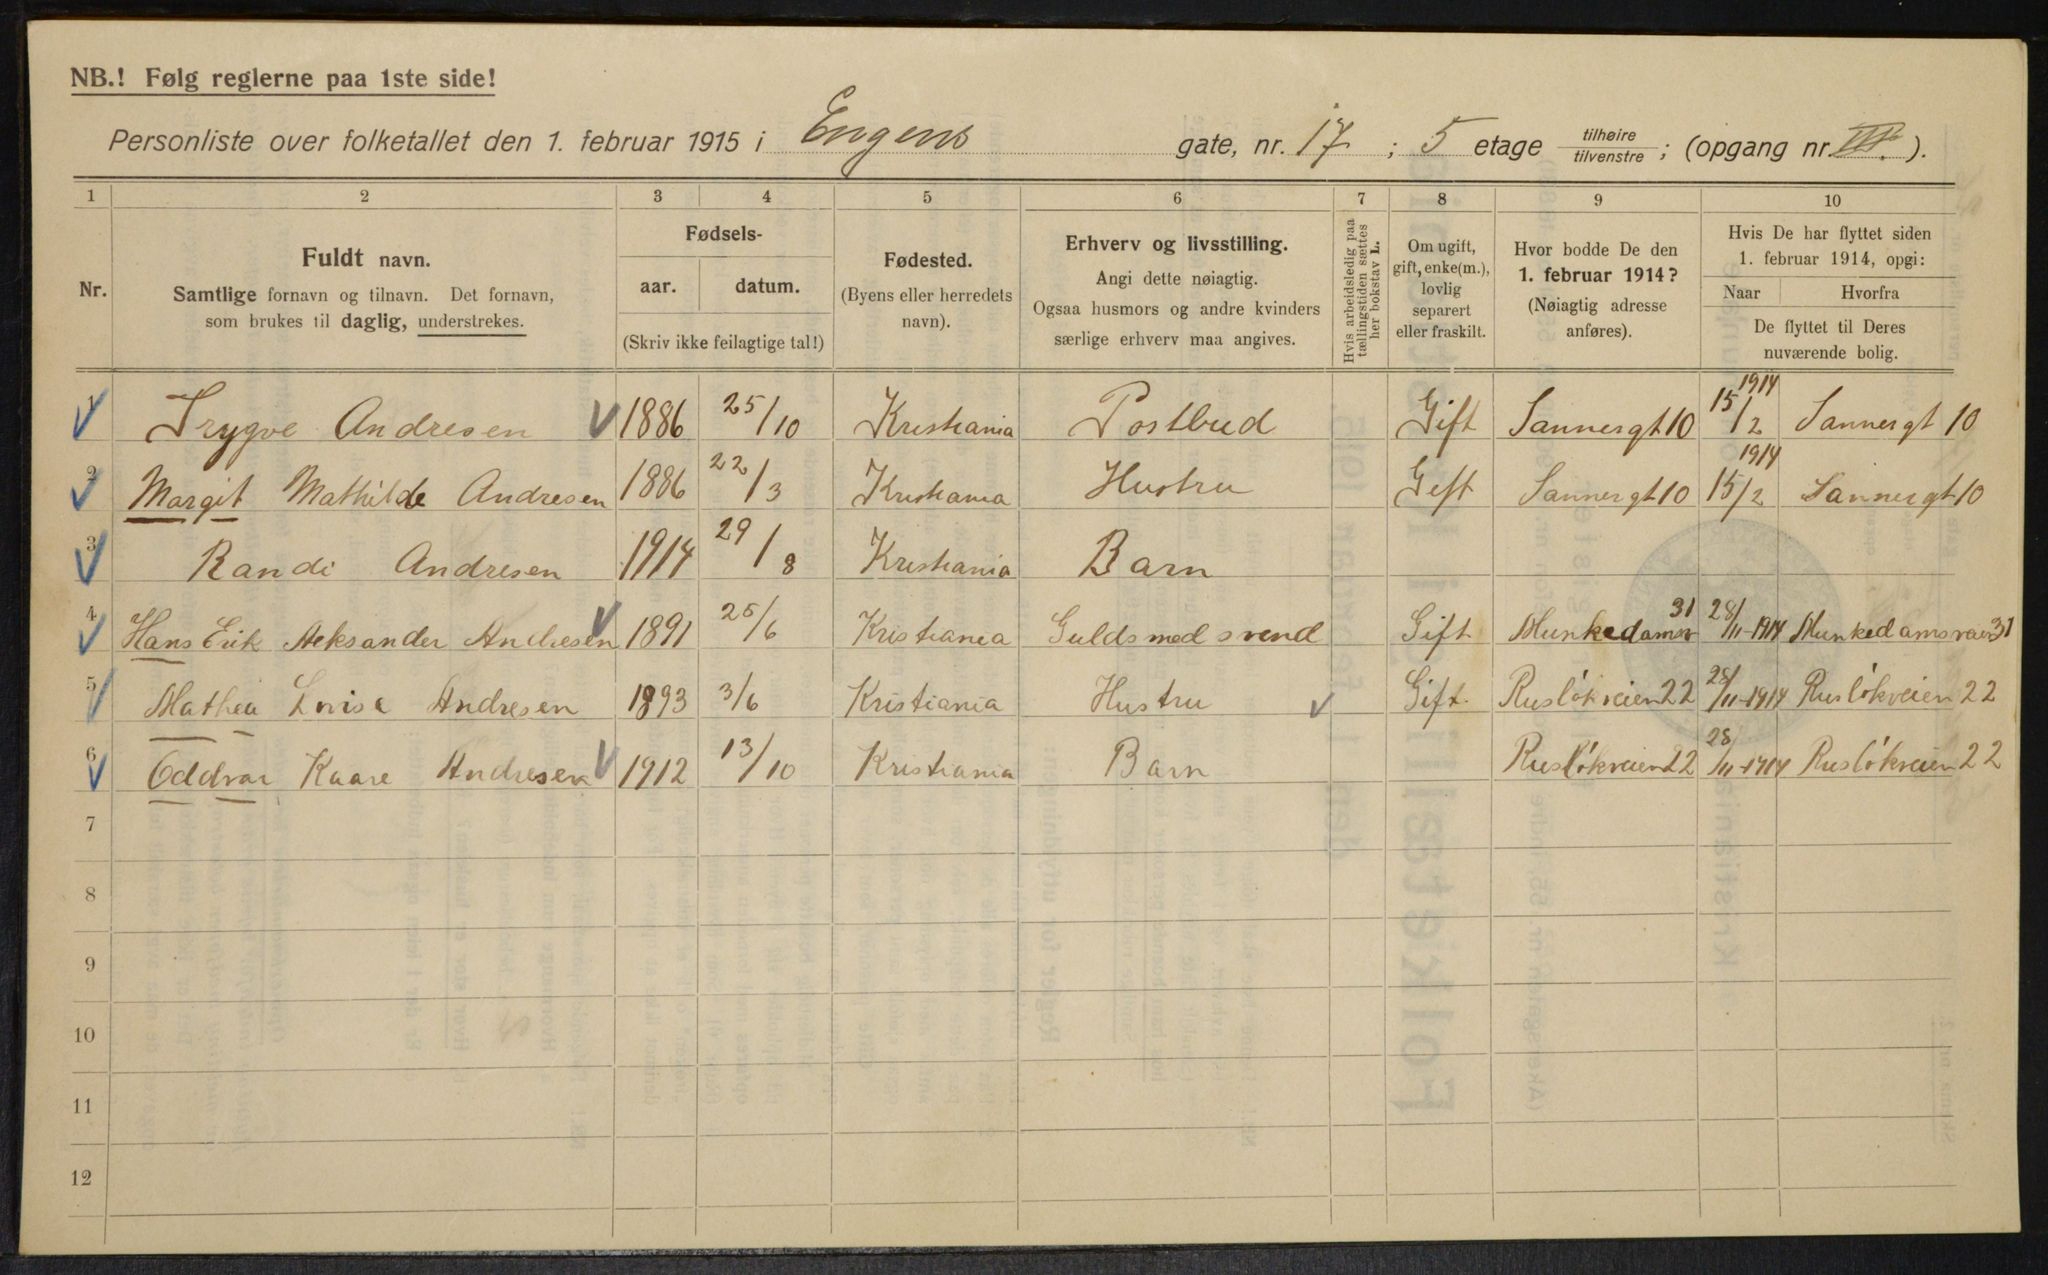 NB.! Følg reglerne paa 1ste side!
Personliste over folketallet den 1. februar 1915 i Engens gate, nr. 17; 5 etage tilhøire/tilvenstre; (opgang nr. III.).
1 2 3 4 5 6 7 8 9 10
Nr.
Fuldt navn.
Samtlige fornavn og tilnavn. Det fornavn,
som brukes til daglig, understrekes.
Fødsels-
aar. datum.
(Skriv ikke feilagtige tal!)
Fødested.
(Byens eller herredets
navn).
Erhverv og livsstilling.
Angi dette nøiagtig.
Ogsaa husmors og andre kvinders
særlige erhverv maa angives.
Hvis arbeidsledig paa
tællingstiden sættes
her bokstav L.
Om ugift,
gift, enke(m.),
lovlig
separert
eller fraskilt.
Hvor bodde De den
1. februar 1914?
(Nøiagtig adresse
anføres).
Hvis De har flyttet siden
1. februar 1914, opgi:
Naar Hvorfra
De flyttet til Deres
nuværende bolig.
1 Trygve Andresen 1886 25/10 Kristiania Postbud Gift Sannergt 10 15/2 1914 Sannergt 10
2 Margit Mathilde Andresen 1886 22/3 Kristiania Hustru Gift Sannergt 10 15/2 1914 Sannergt 10
3 Randi Andresen 1914 29/8 Kristiania Barn
4 Hans Erik Aleksander Andresen 1891 25/6 Kristiania Guldsmedsvend Gift Munkedamsv 31 28/11-1914 Munkedamsveien 31
5 Mathea Lovise Andresen 1893 3/6 Kristiania Hustru Gift. Rusløkveien 22 28/11-1914 Rusløkveien 22
6 Oddvar Kaare Andresen 1912 13/10 Kristiania Barn Rusløkveien 22 28/11-1914 Rusløkveien 22
7
8
9
10
11
12